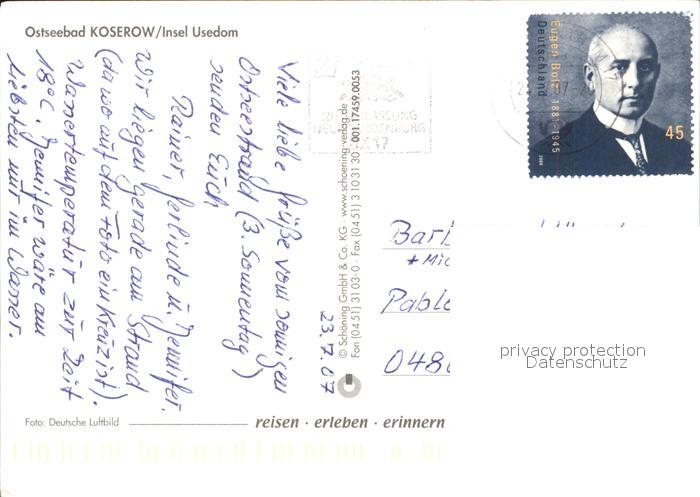 Ostseebad KOSEROW/Insel Usedom
Viele liebe Grüße vom sonnigen
Ostseestrand (3. Sonnentag)
senden Euch
Rainer, Gerlinde u. Jennifer.
Wir liegen gerade am Strand
(da wo auf dem Foto ein Kreuz ist).
Wassertemperatur zur Zeit
18°C. Jennifer wäre am
liebsten nur im Wasser.
23.7.07
© Schöning GmbH & Co. KG · www.schoening-verlag.de
Fon (04 51) 31 03-0 · Fax (04 51) 3 10 31 30 · 001.17459.0053
Eugen Bolz 1881-1945
Deutschland
45
Bar
* Mic
Pablo
048
privacy protection
Datenschutz
Foto: Deutsche Luftbild
reisen · erleben · erinnern